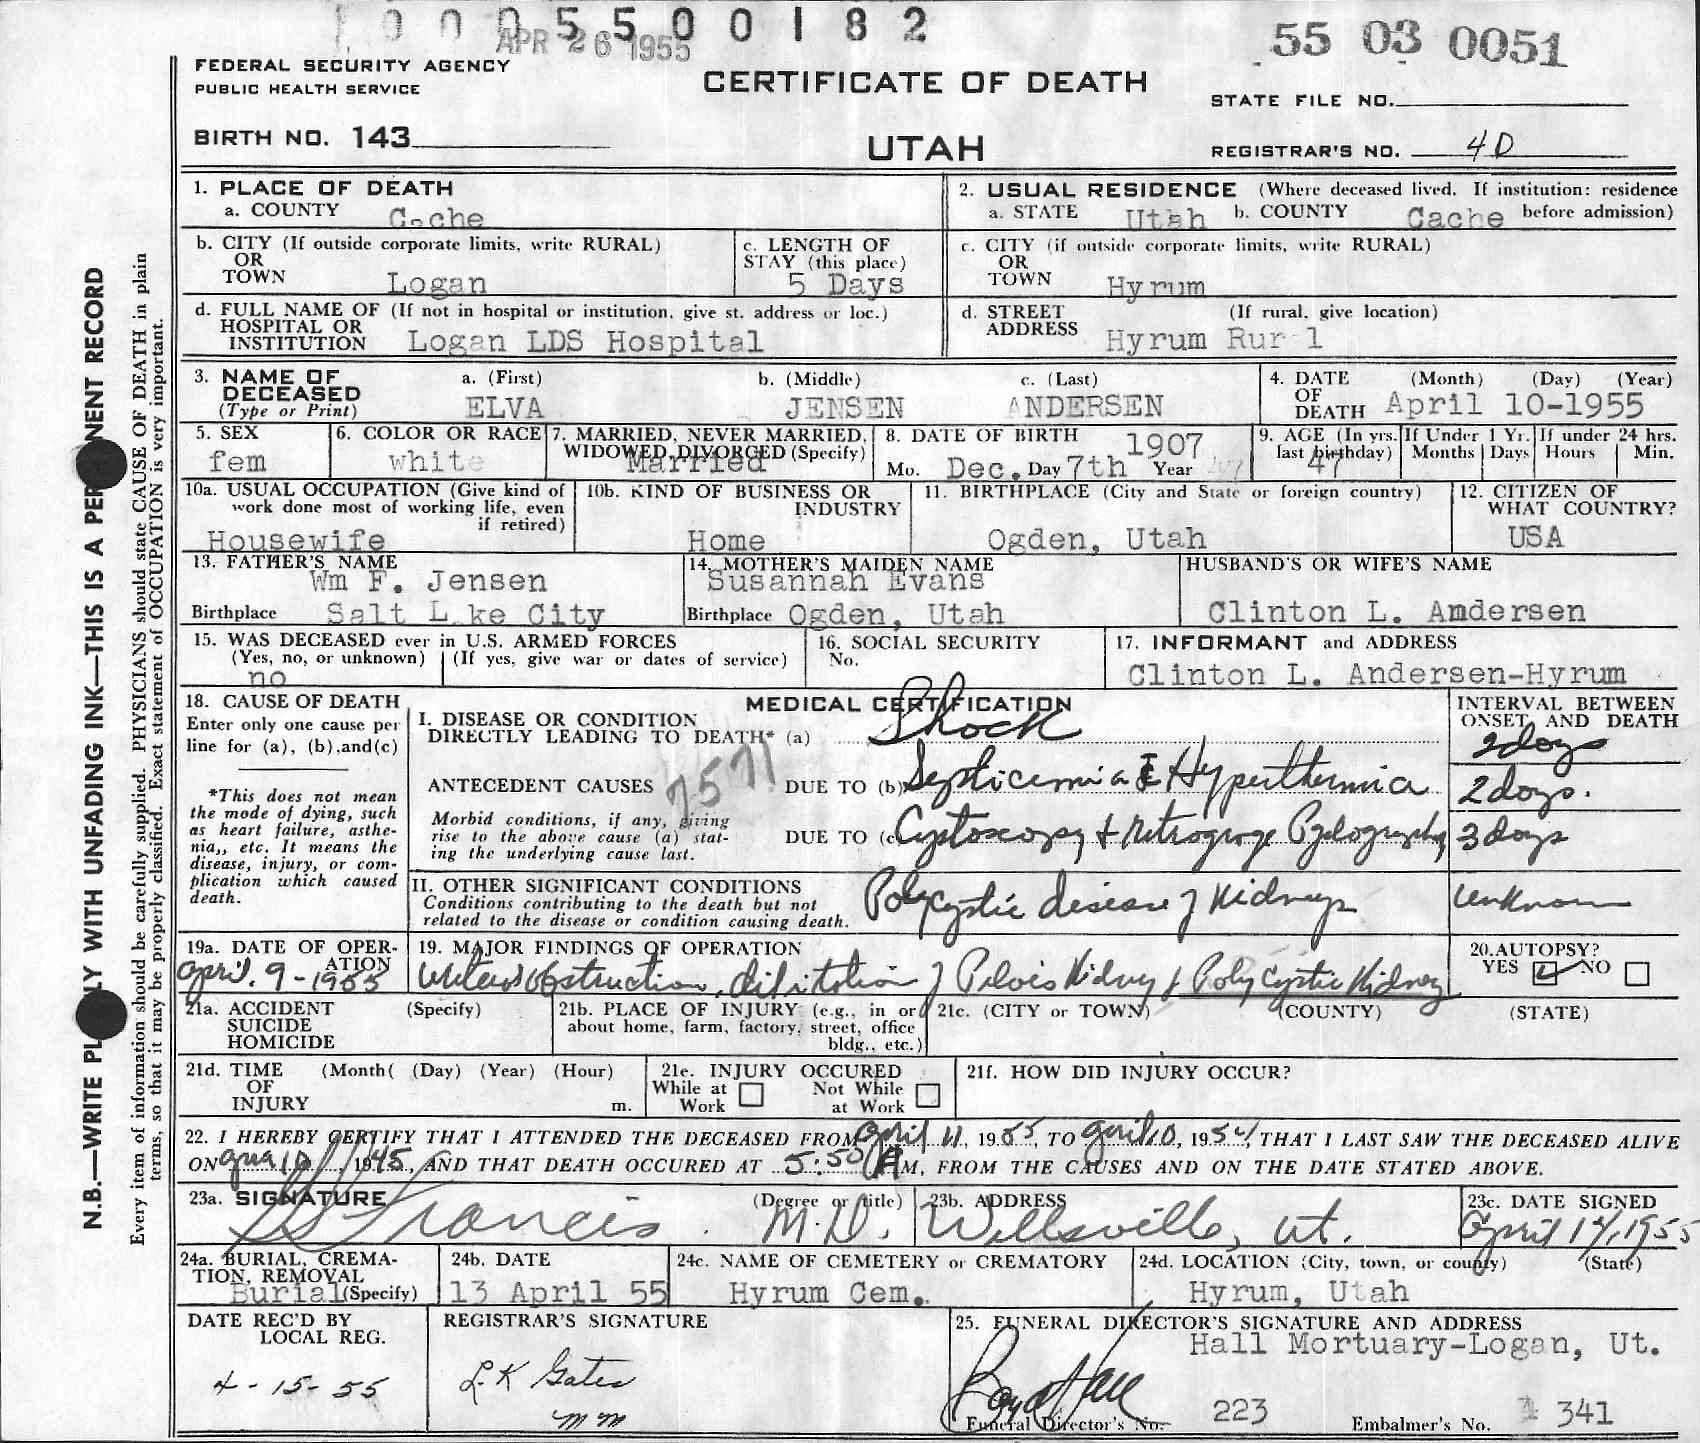 1 0 0 0 5 5 0 0 1 8 2
APR 26 1955
55 03 0051
FEDERAL SECURITY AGENCY
PUBLIC HEALTH SERVICE
CERTIFICATE OF DEATH
STATE FILE NO.
BIRTH NO. 143
UTAH
REGISTRAR'S NO. 4D
N.B.—WRITE PL LY WITH UNFADING INK—THIS IS A PER NENT RECORD
Every item of information should be carefully supplied. PHYSICIANS should state CAUSE OF DEATH in plain
terms, so that it may be properly classified. Exact statement of OCCUPATION is very important.
1. PLACE OF DEATH
a. COUNTY Cache
2. USUAL RESIDENCE (Where deceased lived. If institution: residence
a. STATE Utah b. COUNTY Cache before admission)
b. CITY (If outside corporate limits, write RURAL)
OR
TOWN Logan
c. LENGTH OF
STAY (this place)
5 Days
c. CITY (if outside corporate limits, write RURAL)
OR
TOWN Hyrum
d. FULL NAME OF (If not in hospital or institution, give st. address or loc.)
HOSPITAL OR
INSTITUTION Logan LDS Hospital
d. STREET (If rural, give location)
ADDRESS Hyrum Rur l
3. NAME OF
DECEASED
(Type or Print)
a. (First)
ELVA
b. (Middle)
JENSEN
c. (Last)
ANDERSEN
4. DATE (Month) (Day) (Year)
OF
DEATH April 10-1955
5. SEX
fem
6. COLOR OR RACE
white
7. MARRIED, NEVER MARRIED,
WIDOWED, DIVORCED (Specify)
Married
8. DATE OF BIRTH 1907
Mo. Dec. Day 7th Year
9. AGE (In yrs.
last birthday)
47
If Under 1 Yr.
Months Days
If under 24 hrs.
Hours Min.
10a. USUAL OCCUPATION (Give kind of
work done most of working life, even
if retired)
Housewife
10b. KIND OF BUSINESS OR
INDUSTRY
Home
11. BIRTHPLACE (City and State or foreign country)
Ogden, Utah
12. CITIZEN OF
WHAT COUNTRY?
USA
13. FATHER'S NAME
Wm F. Jensen
Birthplace Salt L ke City
14. MOTHER'S MAIDEN NAME
Susannah Evans
Birthplace Ogden, Utah
HUSBAND'S OR WIFE'S NAME
Clinton L. Andersen
15. WAS DECEASED ever in U.S. ARMED FORCES
(Yes, no, or unknown) (If yes, give war or dates of service)
no
16. SOCIAL SECURITY
No.
17. INFORMANT and ADDRESS
Clinton L. Andersen-Hyrum
18. CAUSE OF DEATH
Enter only one cause per
line for (a), (b), and (c)
*This does not mean
the mode of dying, such
as heart failure, asthe-
nia,, etc. It means the
disease, injury, or com-
plication which caused
death.
MEDICAL CERTIFICATION
I. DISEASE OR CONDITION
DIRECTLY LEADING TO DEATH* (a) Shock
INTERVAL BETWEEN
ONSET AND DEATH
2 days
ANTECEDENT CAUSES 7571 DUE TO (b) Septicemia & Hyperthermia 2 days.
Morbid conditions, if any, giving
rise to the above cause (a) stat-
ing the underlying cause last.
DUE TO (c Cystoscopy + Retrograge Pyelography 3 days
II. OTHER SIGNIFICANT CONDITIONS
Conditions contributing to the death but not
related to the disease or condition causing death.
Polycystic disease of Kidneys Unknown
19a. DATE OF OPER-
ATION
April. 9-1955
19. MAJOR FINDINGS OF OPERATION
obstruction, of Pelvis Kidney + Polycystic Kidney
20. AUTOPSY?
YES NO
21a. ACCIDENT (Specify)
SUICIDE
HOMICIDE
21b. PLACE OF INJURY (e.g., in or
about home, farm, factory, street, office
bldg., etc.)
21c. (CITY or TOWN) (COUNTY) (STATE)
21d. TIME (Month( (Day) (Year) (Hour)
OF
INJURY m.
21e. INJURY OCCURED
While at Not While
Work at Work
21f. HOW DID INJURY OCCUR?
22. I HEREBY CERTIFY THAT I ATTENDED THE DECEASED FROM April 11, 1955, TO April 10, 1954, THAT I LAST SAW THE DECEASED ALIVE
ON 10, 1945, AND THAT DEATH OCCURED AT 5:50 AM, FROM THE CAUSES AND ON THE DATE STATED ABOVE.
23a. SIGNATURE (Degree or title)
Francis M.D.
23b. ADDRESS
Wellsville, Ut.
23c. DATE SIGNED
April 14, 1955
24a. BURIAL, CREMA-
TION, REMOVAL
Burial (Specify)
24b. DATE
13 April 55
24c. NAME OF CEMETERY or CREMATORY
Hyrum Cem.
24d. LOCATION (City, town, or county) (State)
Hyrum, Utah
DATE REC'D BY
LOCAL REG.
4-15-55
REGISTRAR'S SIGNATURE
L.K Gates
mm
25. FUNERAL DIRECTOR'S SIGNATURE AND ADDRESS
Hall Mortuary-Logan, Ut.
Boyd Hall
Funeral Director's No. 223 Embalmer's No. 341